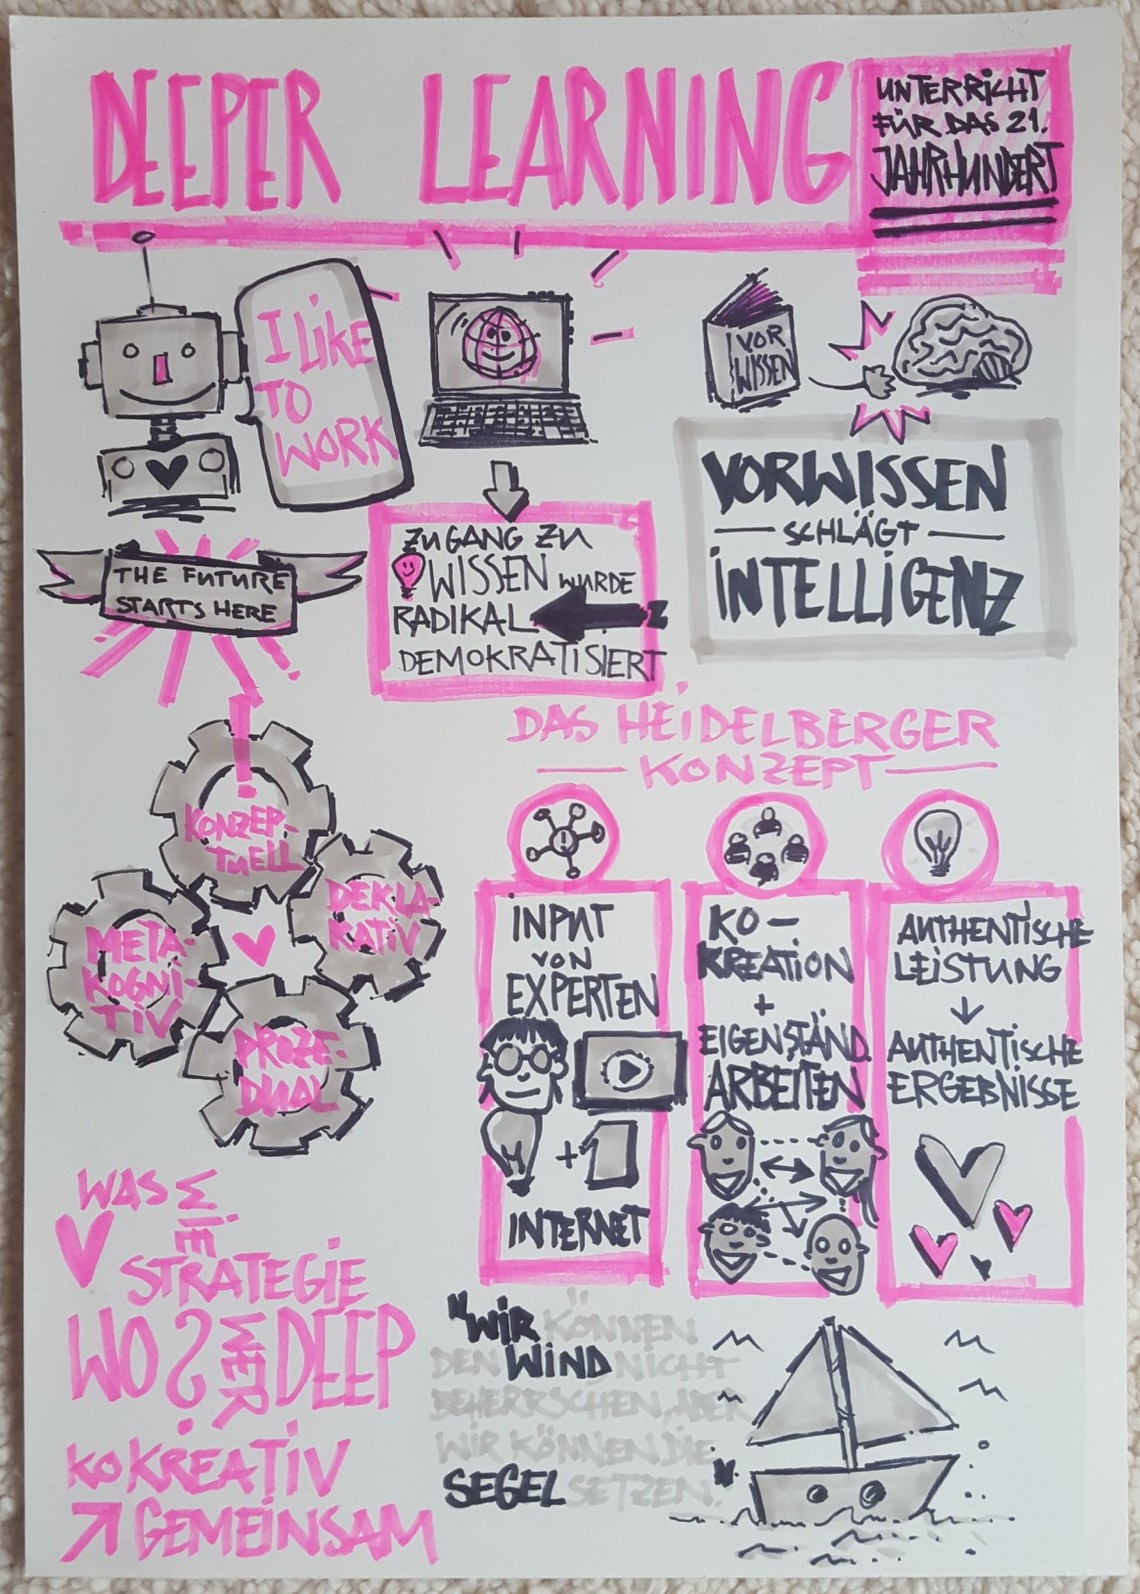 DEEPER LEARNING
UNTERRICHT
FÜR DAS 21.
JAHRHUNDERT
I LIKE
TO
WORK
VOR
WISSEN
THE FUTURE
STARTS HERE
ZUGANG ZU
WISSEN WURDE
RADIKAL
DEMOKRATISIERT
VORWISSEN
SCHLÄGT
INTELLIGENZ
!
KONZEP-
TUELL
DEKLA-
RATIV
META-
KOGNI-
TIV
PROZE-
DUAL
DAS HEIDELBERGER
KONZEPT
INPUT
VON
EXPERTEN
+
INTERNET
KO-
KREATION
+
EIGENSTÄND.
ARBEITEN
AUTHENTISCHE
LEISTUNG
AUTHENTISCHE
ERGEBNISSE
WAS
WIE
STRATEGIE
WO ? WER DEEP
KOKREATIV
GEMEINSAM
"WIR KÖNNEN
DEN WIND NICHT
BEHERRSCHEN, ABER
WIR KÖNNEN DIE
SEGEL SETZEN."